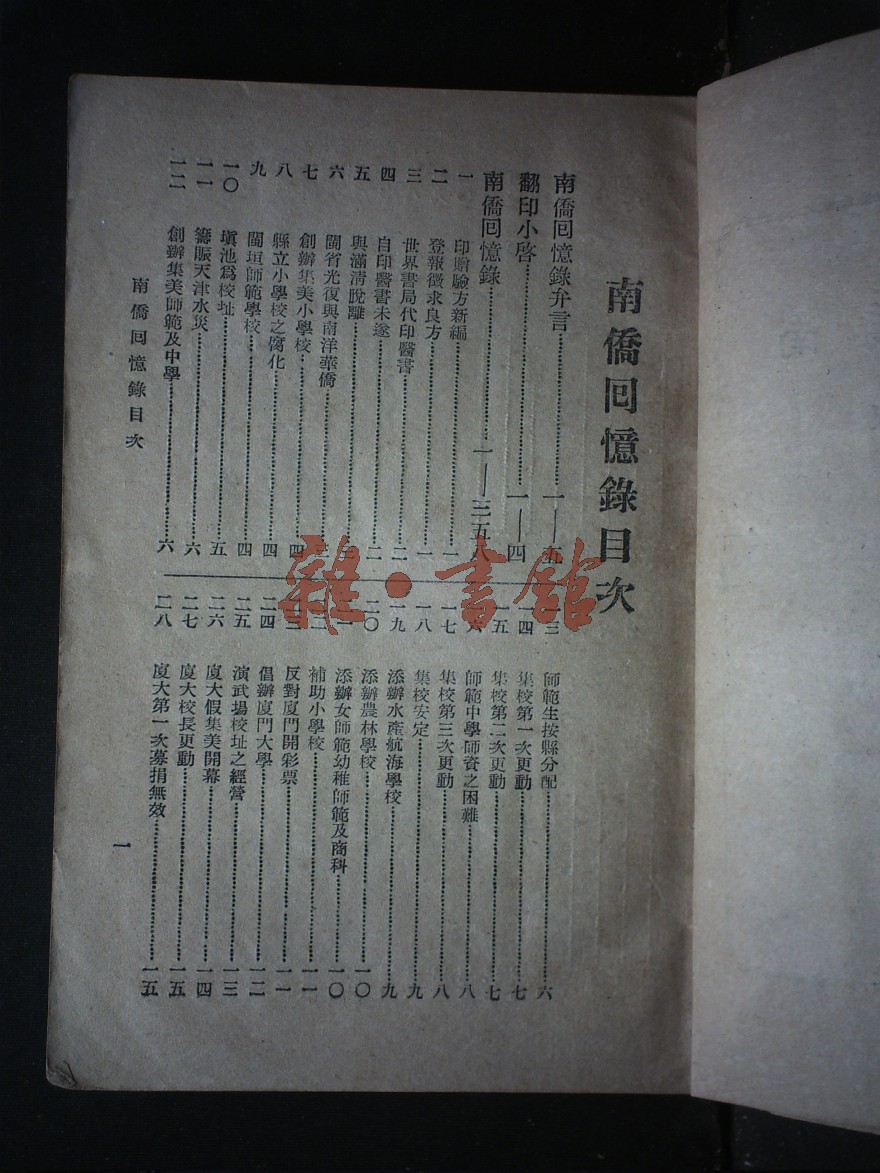 南僑回憶錄目次
南僑回憶錄弁言 一—五
翻印小啓 一—四
南僑回憶錄 一—三五八
一 印贈驗方新編 一
二 登報徵求良方 一
三 世界書局代印醫書 二
四 自印醫書未遂 二
五 與滿清脫離
六 閩省光復與南洋華僑 三
七 創辦集美小學校 四
八 縣立小學校之腐化 四
九 閩垣師範學校 四
一〇 塡池爲校址 五
一一 籌賑天津水災 六
一二 創辦集美師範及中學 六
一三 師範生按縣分配 六
一四 集校第一次更動 七
一五 集校第二次更動 七
一六 師範中學師資之困難 八
一七 集校第三次更動 八
一八 集校安定 九
一九 添辦水產航海學校 九
二〇 添辦農林學校 一〇
二一 添辦女師範幼稚師範及商科 一〇
二二 補助小學校 一一
二三 反對廈門開彩票 一一
二四 倡辦廈門大學 一二
二五 演武場校址之經營 一三
二六 廈大假集美開幕 一四
二七 廈大校長更動 一五
二八 廈大第一次募捐無效 一五
南僑回憶錄目次
一
雜·書館